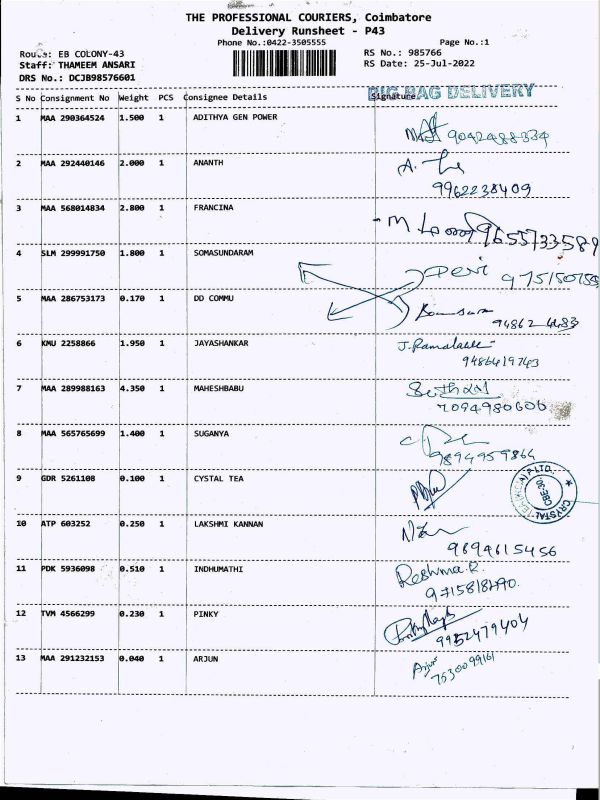 THE PROFESSIONAL COURIERS, Coimbatore
Delivery Runsheet - P43
Phone No.:0422-3505555
Page No.:1
Route: EB COLONY-43
RS No.: 985766
Staff: THAMEEM ANSARI
RS Date: 25-Jul-2022
DRS No.: DCJB98576601
BIG BAG DELIVERY
S No Consignment No Weight PCS Consignee Details Signature
1 MAA 290364524 1.500 1 ADITHYA GEN POWER
9042488334
2 MAA 292440146 2.000 1 ANANTH
9962238409
3 MAA 568014834 2.800 1 FRANCINA
9655733589
4 SLM 299991750 1.800 1 SOMASUNDARAM
Devi
5 MAA 286753173 0.170 1 DD COMMU
6 KMU 2258866 1.950 1 JAYASHANKAR
9486419743
7 MAA 289988163 4.350 1 MAHESHBABU
7094980606
8 MAA 565765699 1.400 1 SUGANYA
9894959864
9 GDR 5261108 0.100 1 CYSTAL TEA
10 ATP 603252 0.250 1 LAKSHMI KANNAN
9894615456
11 PDK 5936098 0.510 1 INDHUMATHI
Reshma.R.
12 TVM 4566299 0.230 1 PINKY
9952479404
13 MAA 291232153 0.040 1 ARJUN
Arjun
7530099161